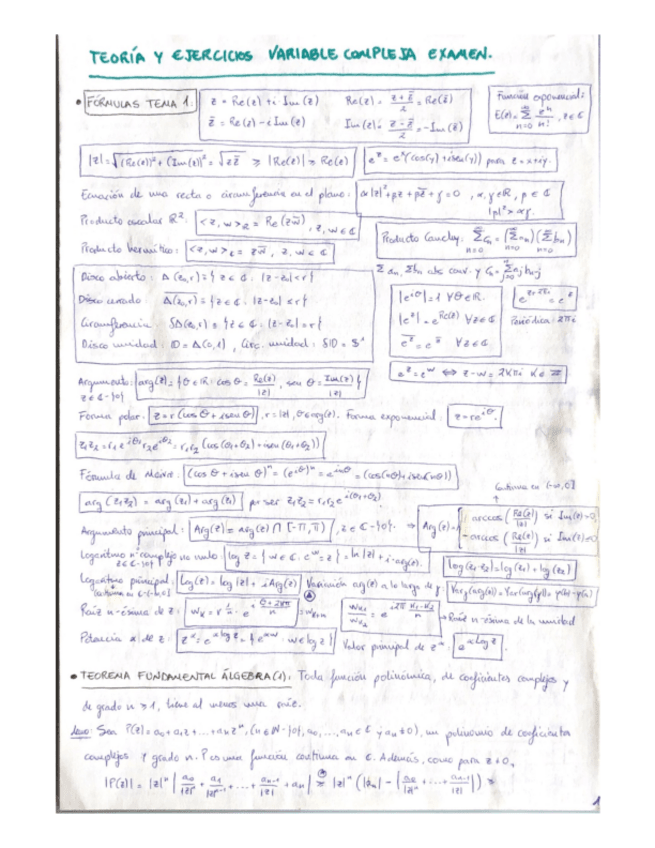 TEORÍA Y EJERCICIOS VARIABLE COMPLEJA EXAMEN.
• FÓRMULAS TEMA 1. z = Re(z) + i Im(z) Re(z) = (z + z̄)/2 = Re(z̄) Función exponencial:
z̄ = Re(z) - i Im(z) Im(z) = (z - z̄)/2 = -Im(z̄) E(z) = Σ_{n=0}^∞ z^n/n!, z ∈ ℂ
|z| = √((Re(z))² + (Im(z))²) = √(z z̄) ≥ |Re(z)| ≥ Re(z) e^z = e^x(cos(y) + i sen(y)) para z = x+iy.
Ecuación de una recta o circunferencia en el plano: α|z|² + βz + β̄z̄ + γ = 0, α, γ ∈ ℝ, β ∈ ℂ
|β|² > αγ.
Producto escalar ℝ²: <z,w>_ℝ = Re(z w̄), z, w ∈ ℂ
Producto Cauchy: Σ_{n=0}^∞ c_n = (Σ_{n=0}^∞ a_n)(Σ_{n=0}^∞ b_n)
Producto hermítico: <z,w>_ℂ = z w̄, z, w ∈ ℂ
Σ a_n, Σ b_n abs conv. y
Disco abierto: Δ(z₀,r) = {z ∈ ℂ : |z-z₀| < r}
Disco cerrado: Δ̄(z₀,r) = {z ∈ ℂ : |z-z₀| ≤ r}
Circunferencia: δΔ(z₀,r) = {z ∈ ℂ : |z-z₀| = r}
Disco unidad: D = Δ(0,1), Circ. unidad: δD = S¹
|e^{iθ}| = 1 ∀θ ∈ ℝ. e^{z+2πi} = e^z
|e^z| = e^{Re(z)} ∀z ∈ ℂ Periódica: 2πi
∀z ∈ ℂ
e^z = e^w ⟺ z-w = 2kπi k ∈ ℤ
Argumento: arg(z) = {θ ∈ ℝ : cos θ = Re(z)/|z|, sen θ = Im(z)/|z|}
z ∈ ℂ-{0}
Forma polar: z = r(cos θ + i sen θ), r = |z|, θ ∈ arg(z). Forma exponencial: z = re^{iθ}.
z₁z₂ = r₁e^{iθ₁} r₂e^{iθ₂} = r₁r₂(cos(θ₁+θ₂) + i sen(θ₁+θ₂))
Fórmula de Moivre: (cos θ + i sen θ)^n = (e^{iθ})^n = e^{inθ} = (cos(nθ) + i sen(nθ))
arg(z₁z₂) = arg(z₁) + arg(z₂) por ser z₁z₂ = r₁r₂e^{i(θ₁+θ₂)}
Argumento principal: Arg(z) = arg(z) ∩ [-π,π), z ∈ ℂ-{0}. ⇒ Arg(z) = arccos(Re(z)/|z|) si
-arccos(Re(z)/|z|) si
Logaritmo complejo no nulo log z = {w ∈ ℂ : e^w = z} = ln|z| + i·arg(z).
z ∈ ℂ-{0}
log(z₁·z₂) = log(z₁) + log(z₂)
Logaritmo principal: Log(z) = log|z| + i Arg(z) Variación arg(z) a lo largo de γ
Raíz n-ésima de z: → Raíz n-ésima de la unidad
Potencia α de z: z^α = e^{α log z} = {e^{αw} : w ∈ log z} Valor principal de z^α: e^{α Log z}.
• TEOREMA FUNDAMENTAL ÁLGEBRA (1): Toda función polinómica, de coeficientes complejos y
de grado n ≥ 1, tiene al menos una raíz.
demo: Sea P(z) = a₀ + a₁z + ... + a_n z^n, (n ∈ ℕ-{0}, a₀, ..., a_n ∈ ℂ y a_n ≠ 0), un polinomio de coeficientes
complejos y grado n. P es una función continua en ℂ. Además, como para z ≠ 0,
|P(z)| = |z|^n |a₀/|z|^n + a₁/|z|^{n-1} + ... + a_{n-1}/|z| + a_n| ≥ |z|^n (|a_n| - |a₀/|z|^n + ... + a_{n-1}/|z||) ≥
1